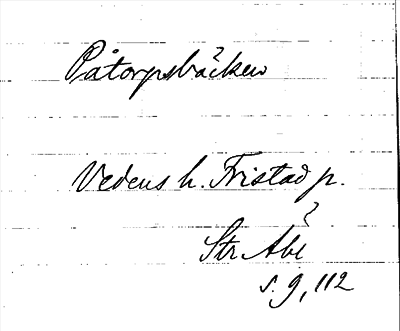 Påtorpsbäcken
Vedens h. Fristad p.
Str Åbl
s. 9, 112